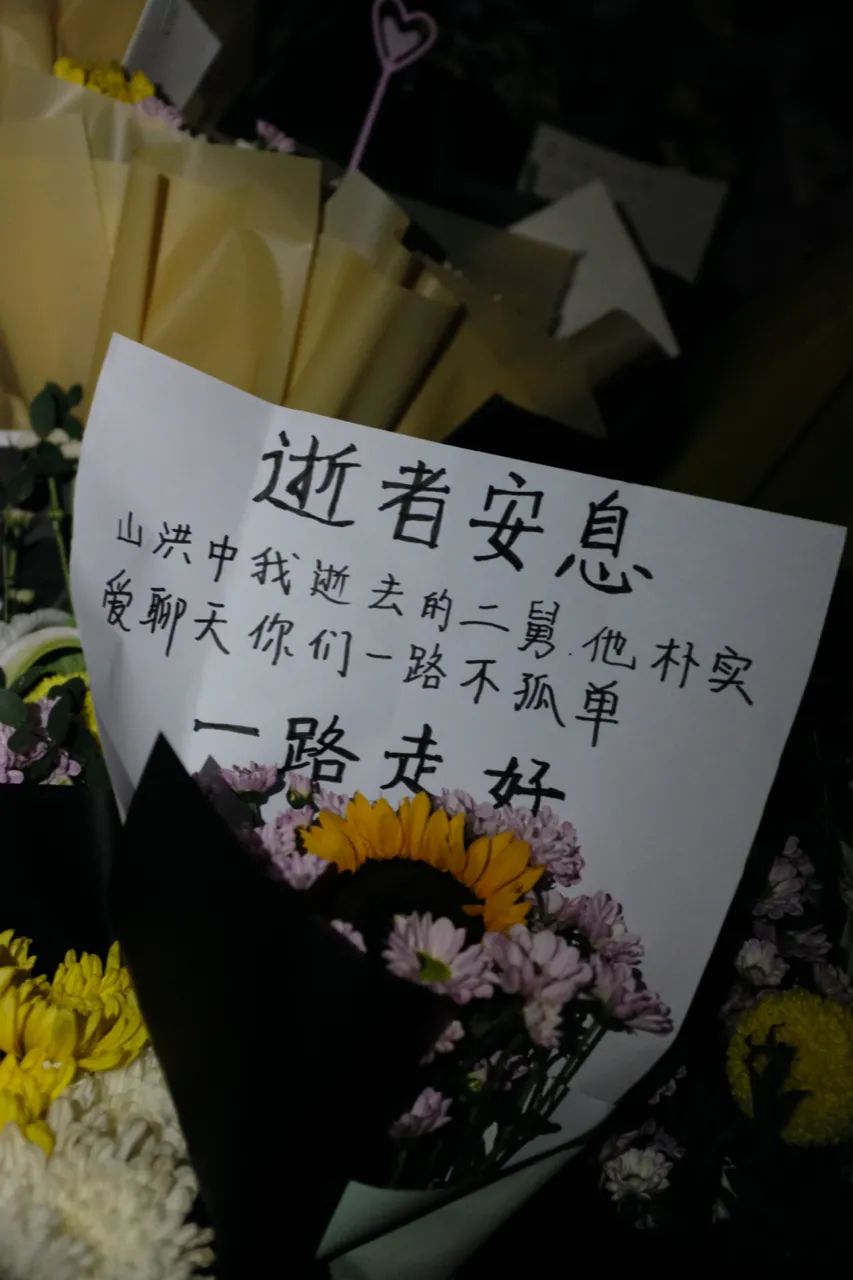 逝者安息
山洪中我逝去的二舅.他朴实
爱聊天你们一路不孤单
一路走好